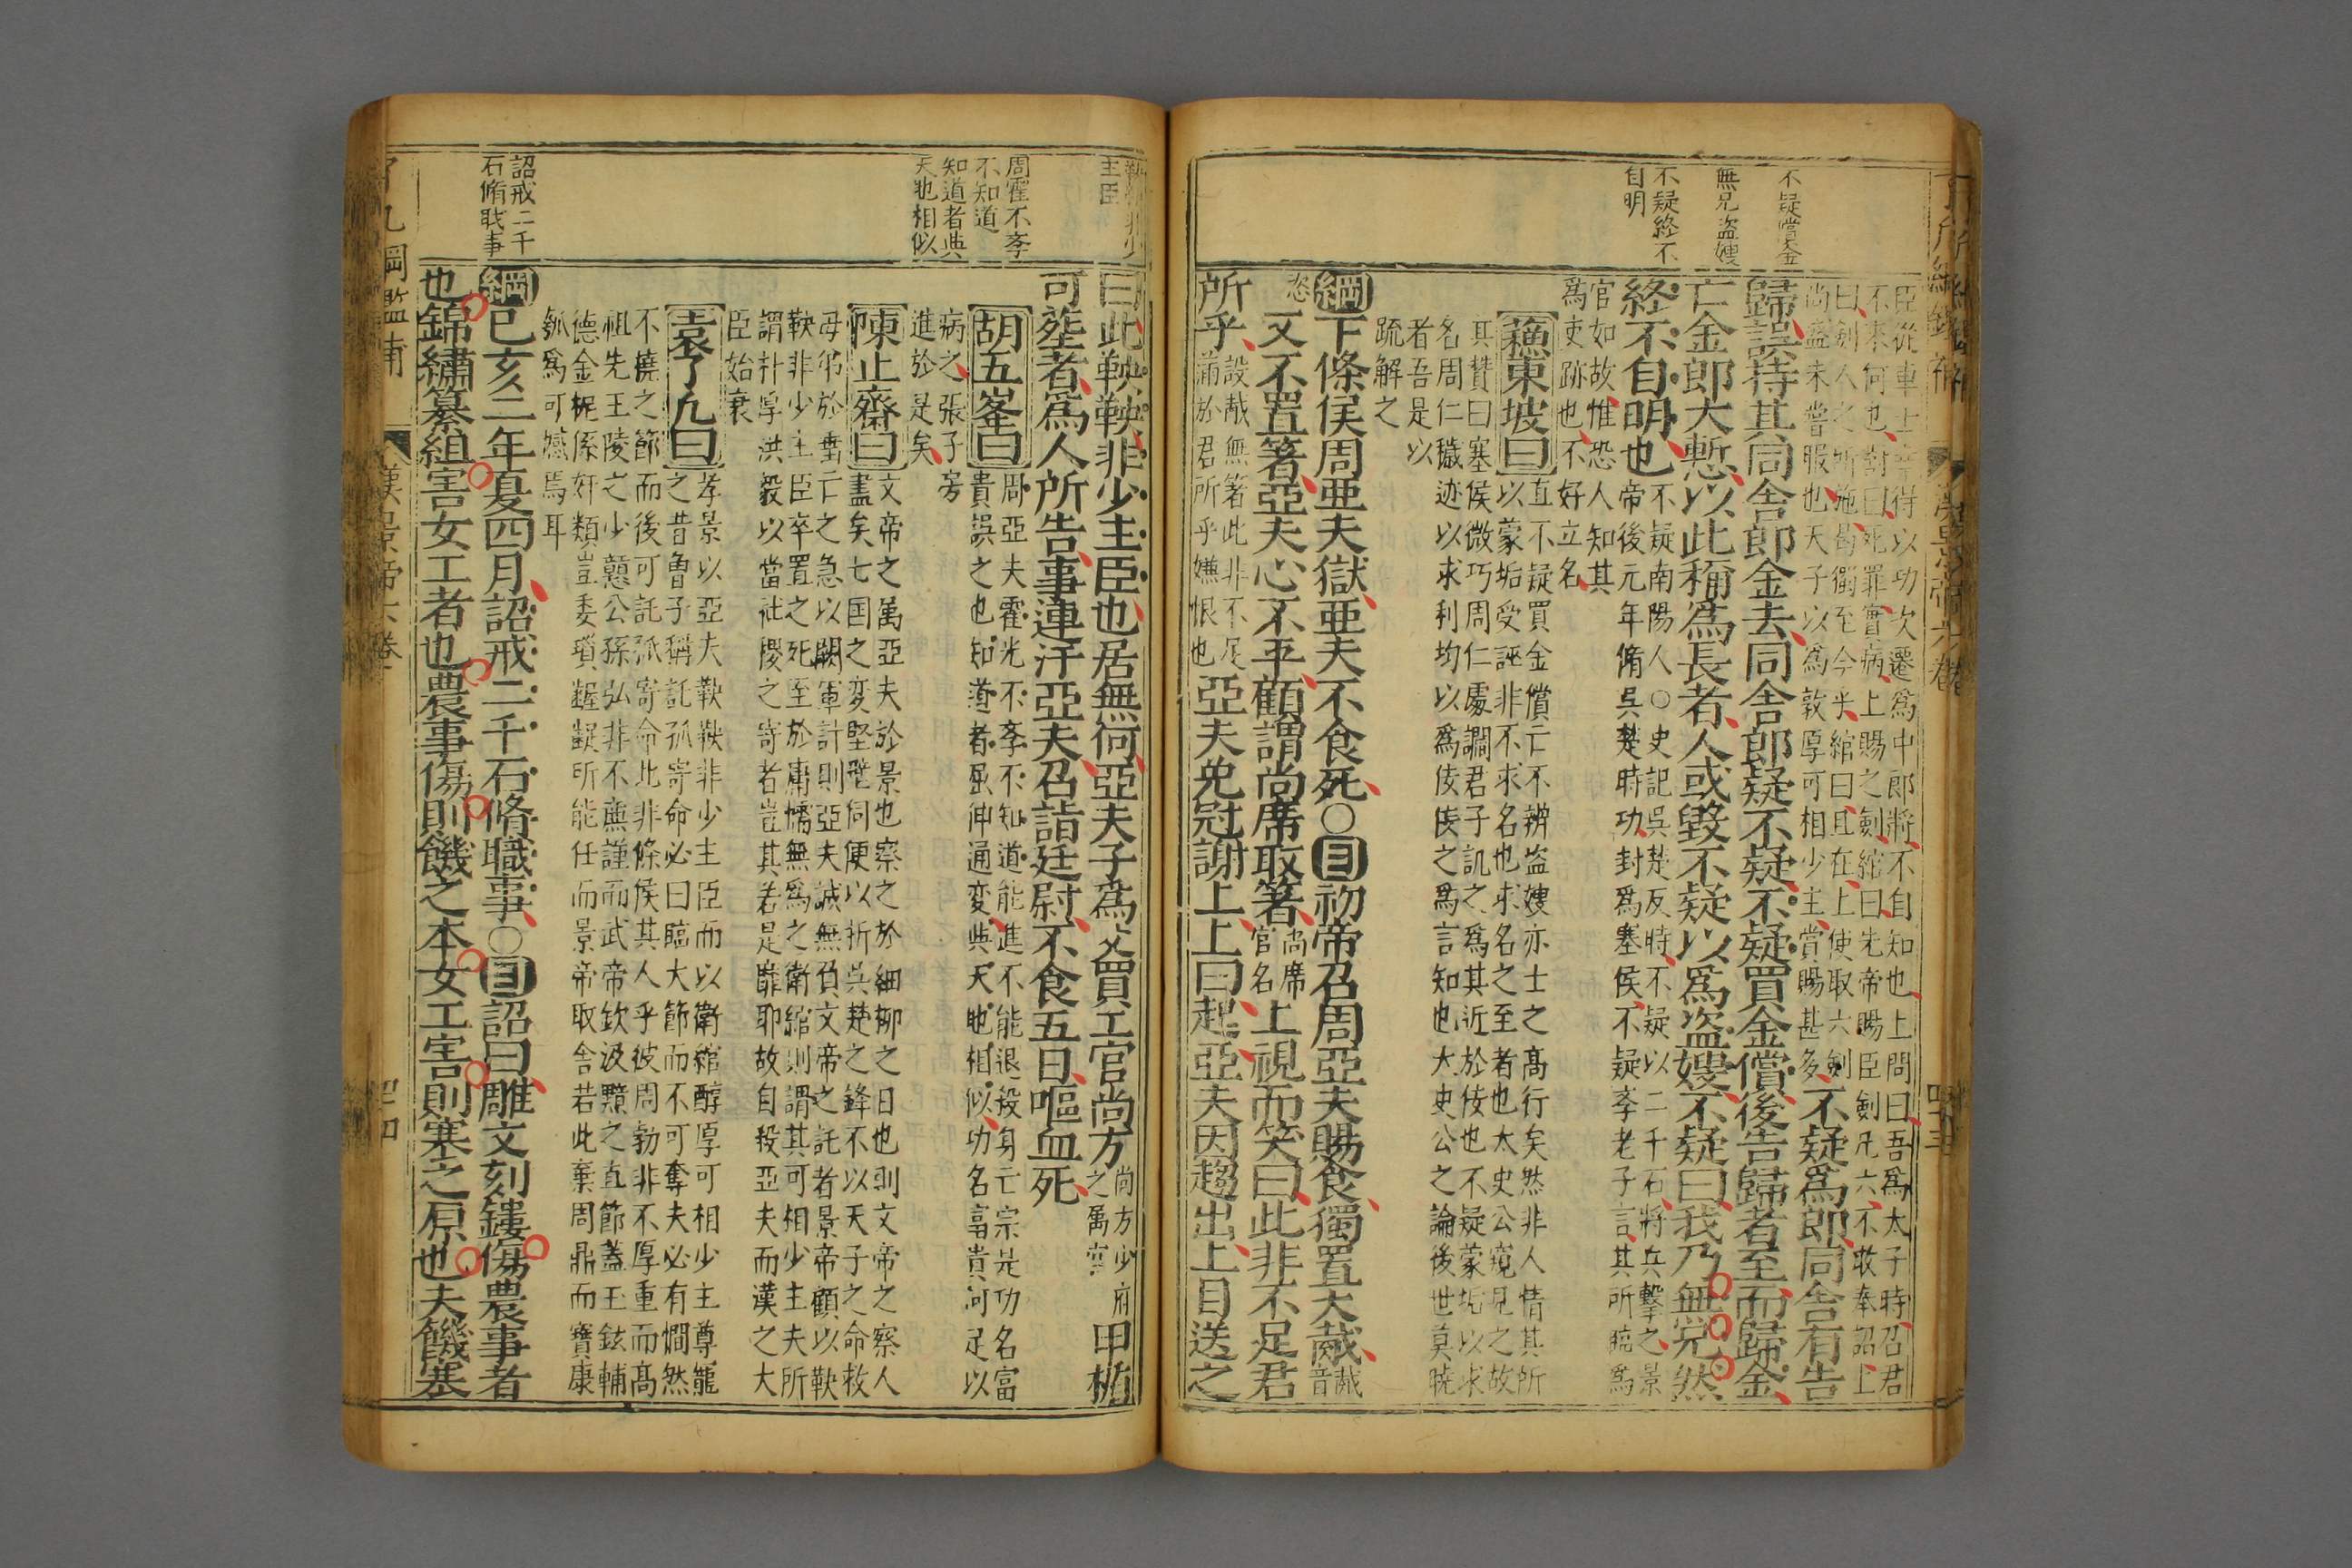 不疑償金
無兄盜嫂
不疑終不
自明
臣從車士幸得以功次遷爲中郎將不自知也上問曰吾爲太子時召君
不來何也對曰死罪實病上賜之劍綰曰先帝賜臣劍凡六不敢奉詔上
曰劍人之所施易獨至今乎綰曰且在上使取六劍
尚盛未嘗服也天子以爲敦厚可相少主賞賜甚多
不疑爲郎同舍有告
歸誤持其同舍郎金去同舍郎疑不疑不疑買金償後告歸者至而歸金
亡金郎大慙以此稱爲長者人或毀不疑以爲盜嫂不疑曰我乃無兄然
終不自明也
不疑南陽人○史記吳楚反時不疑以二千石將兵擊之景
帝後元年脩吳楚時功封爲塞侯不疑李老子言其所臨爲
官如故惟恐人知其
爲吏跡也不好立名
蘓東坡曰
直不疑買金償亡不辨盜嫂亦士之高行矣然非人情其所
以蒙垢受誣非不求名也求名之至者也太史公窺見之故
其贊曰塞侯微巧周仁處讇君子譏之爲其近於佞也不疑蒙垢以求
名周仁穢迹以求利均以爲佞佞之爲言知也大史公之論後世莫曉
者吾是以
疏解之
綱下條侯周亜夫獄亜夫不食死○目初帝召周亞夫賜食獨置大胾
胾
音
恣
又不置箸亞夫心不平顧謂尚席取箸
尚席
官名
上視而笑曰此非不足君
所乎
設胾無箸此非不足
滿於君所乎嫌恨也
亞夫免冠謝上上曰起亞夫因趨出上目送之
鞅鞅非少
主臣
周霍不李
不知道
知道者與
天地相似
詔戒二千
石脩戝事
曰此鞅鞅非少主臣也居無何亞夫子爲父買工官尚方
尚方少府
之屬官
甲楯
可葬者爲人所告事連汙亞夫召詣廷尉不食五日嘔血死
胡五峯曰
周亞夫霍光不李不知道能進不能退殺身亡宗是功名富
貴誤之也知道者屈伸通変與天地相似功名冨貴何足以
病之張子房
進於是矣
陳止齋曰
文帝之屬亞夫於景也察之於細栁之日也則文帝之察人
盡矣七囯之変堅壁何便以折吳楚之鋒不以天子之命救
毋弟於垂亡之急以闕軍計則亞夫誠無負文帝之託者景帝顧以鞅
鞅非少主臣卒置之死至於庸懦無爲之衛綰則謂其可相少主夫所
謂朴厚洪毅以當社稷之寄者豈其若是靡耶故自殺亞夫而漢之大
臣始衰
袁了凡曰
孝景以亞夫鞅鞅非少主臣而以衛綰醇厚可相少主尊寵
之昔曾子稱託孤寄命必曰臨大節而不可奪夫必有憪然
不撓之節而後可託孤寄命此非條侯其人乎彼周勃非不厚重而高
祖先王陵之少戇公孫弘非不亷謹而武帝欽汲黯之直節蓋玉鉉輔
德金柅係奸類豈委瑣齷齪所能任而景帝取舍若此棄周鼎而寶康
瓠爲可嘅焉耳
綱己亥二年夏四月詔戒二千石脩職事○目詔曰雕文刻鏤傷農事者
也錦繡纂組害女工者也農事傷則饑之本女工害則寒之原也夫饑寒
了凡綱鑑補
漢景帝六卷
四四